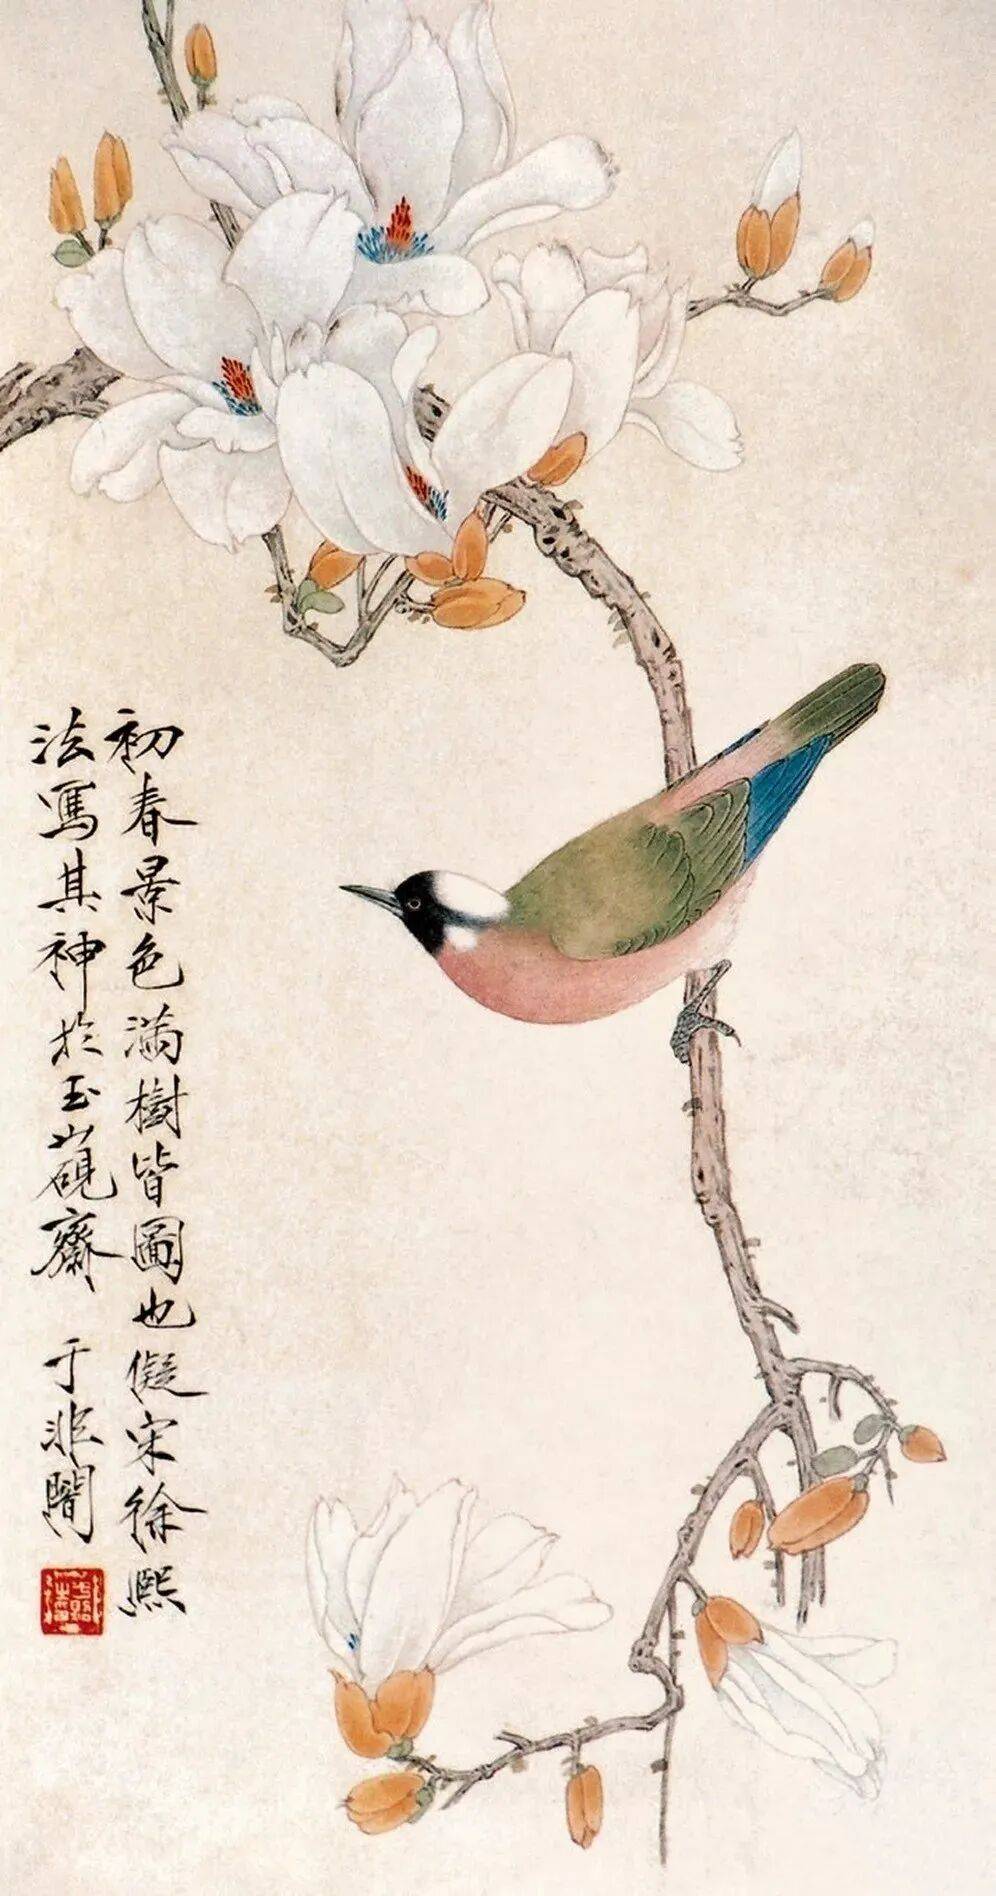 初春景色滿樹皆圖也儗宋徐熙
法寫其神於玉山硯齋 于非闇